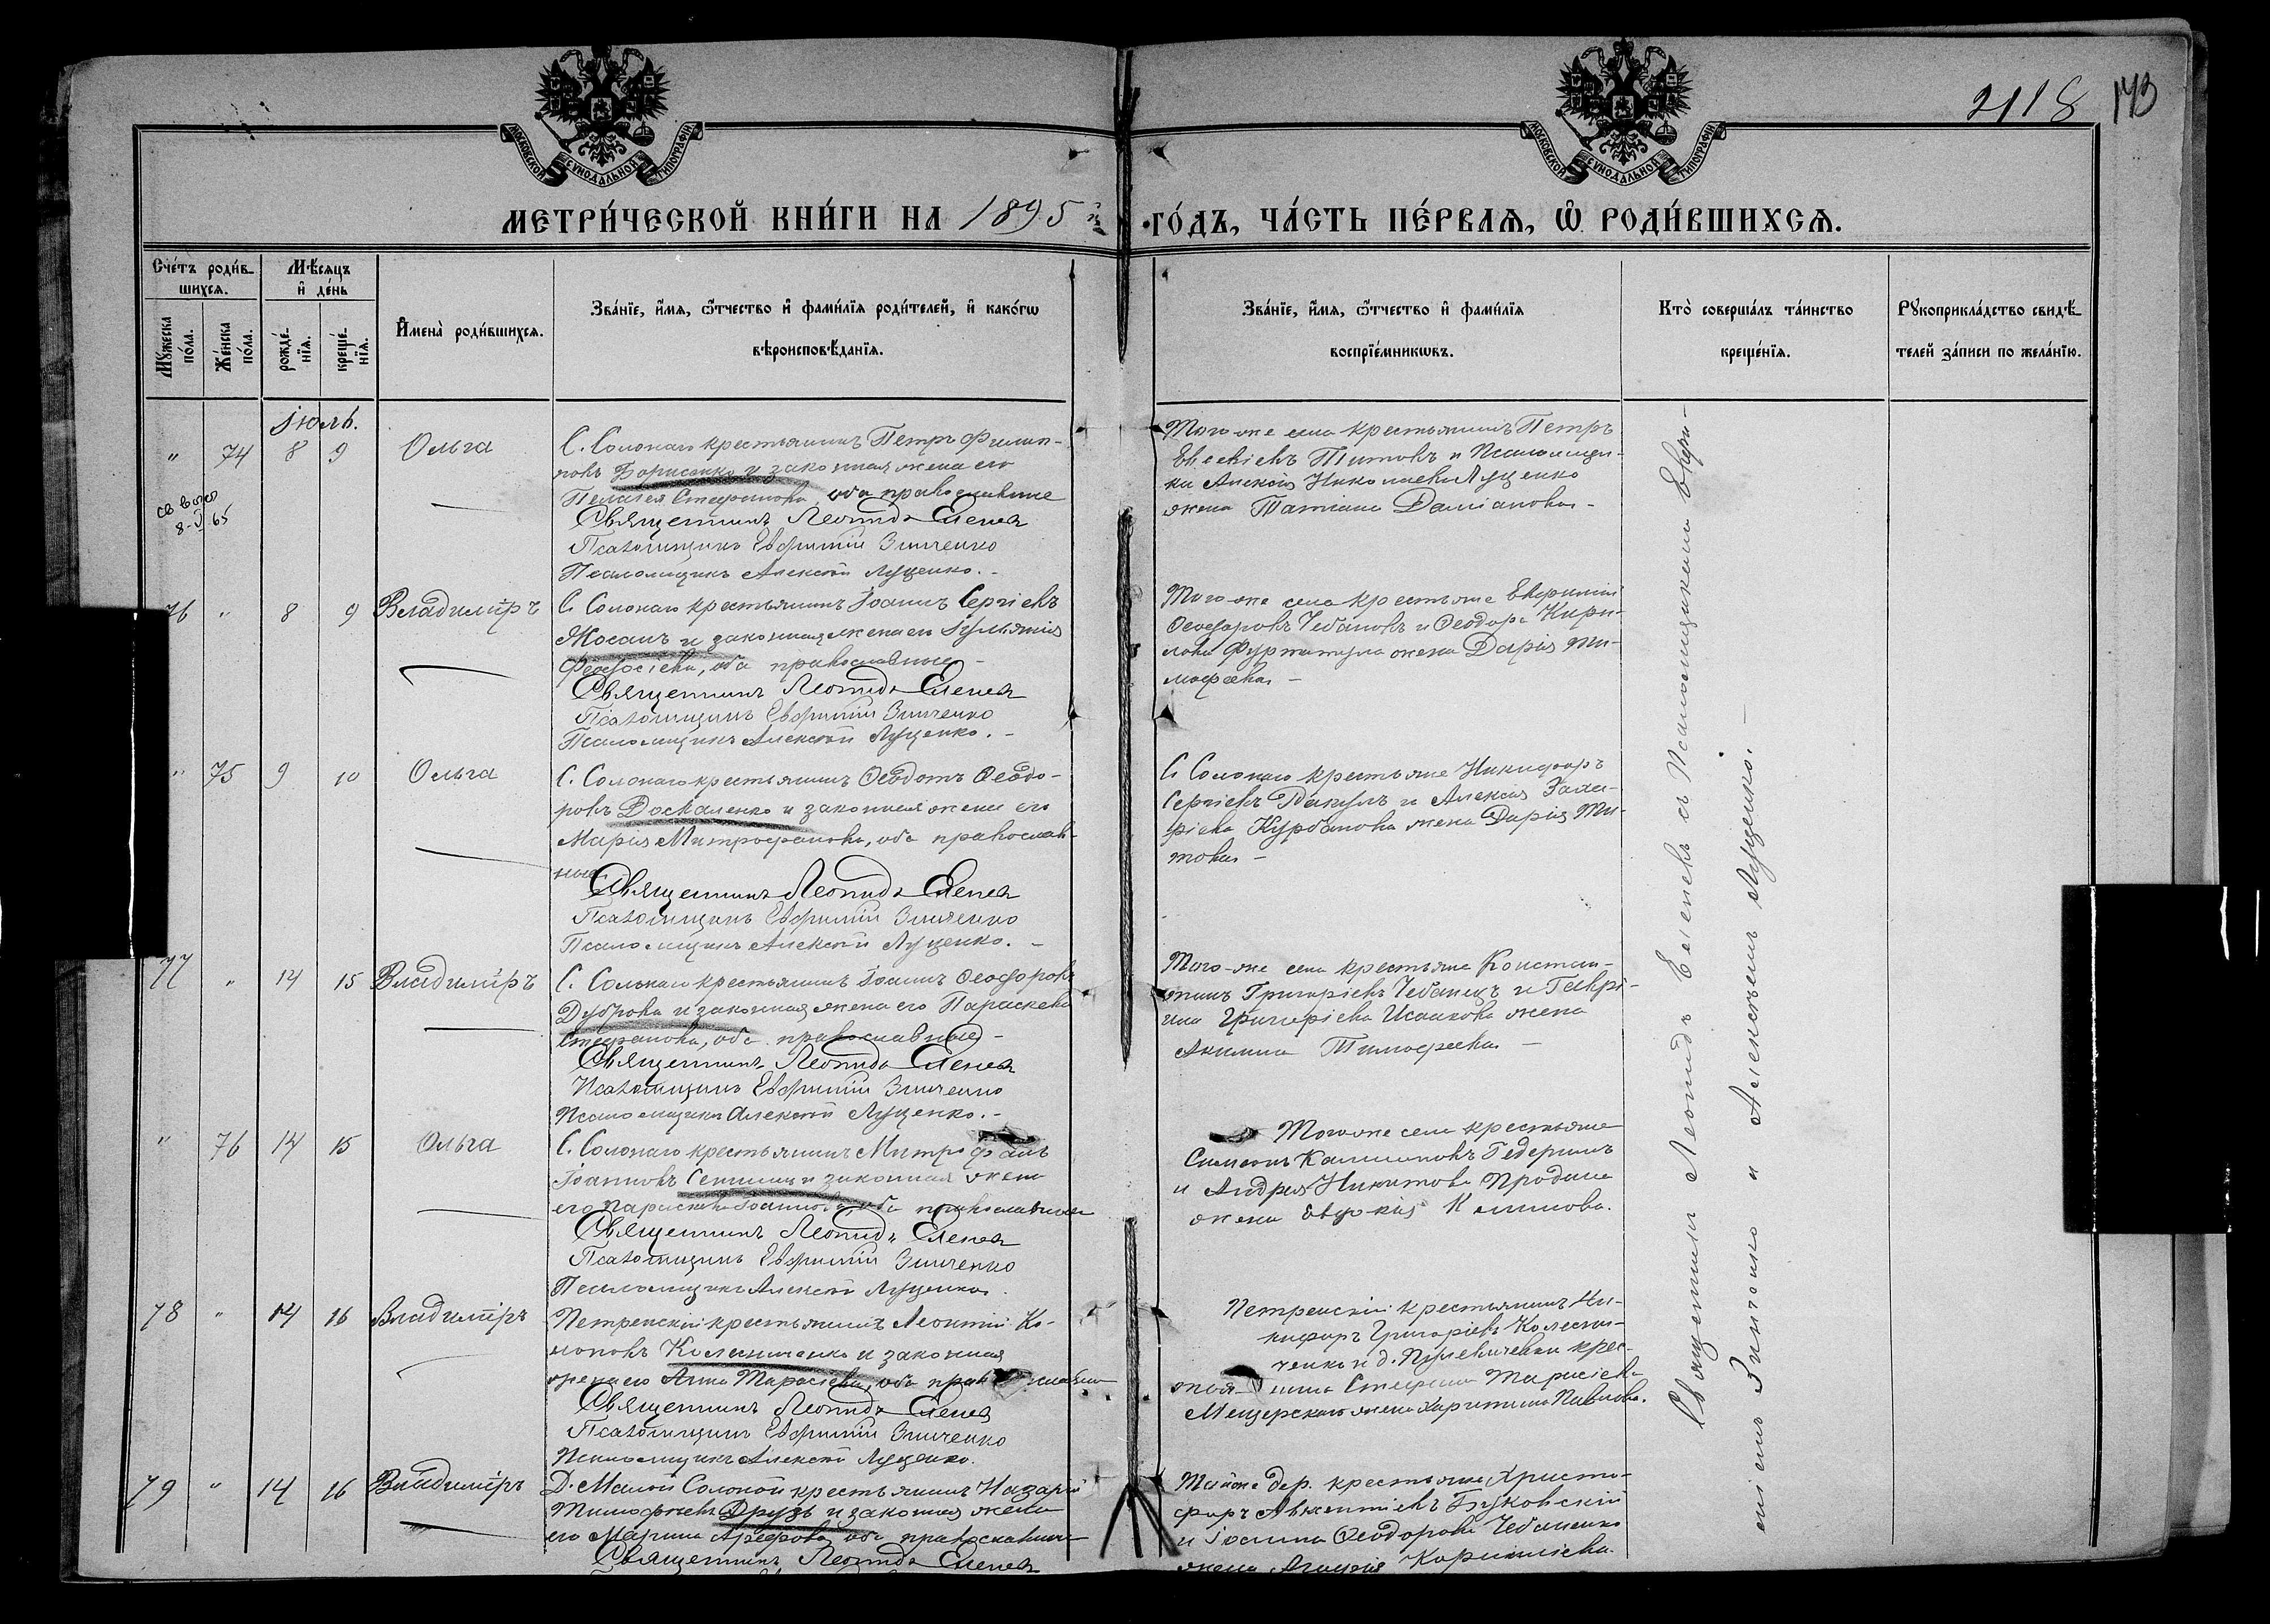 2118 143
МОСКОВСКОЙ СѴНОДАЛЬНОЙ ТИПОГРАФІИ
МОСКОВСКОЙ СѴНОДАЛЬНОЙ ТИПОГРАФІИ
МЕТРИ́ЧЕСКОЙ КНИ́ГИ НА 1895й ГО́ДЪ, ЧА́СТЬ ПЕ́РВАѦ, Ѡ РОДИ́ВШИХСѦ.
Сче́тъ роди́в-
шихсѧ.
Мꙋ́жеска
по́ла.
Же́нска
по́ла.
Мѣ́сѧцъ
и҆ де́нь
рожде́-
нїѧ.
креще́-
нїѧ.
И҆мена̀ роди́вшихсѧ.
Зва́нїе, и҆́мѧ, ѻ҆́тчество и҆ фами́лїѧ роди́телей, и҆ како́гѡ
вѣроисповѣ́данїѧ.
Зва́нїе, и҆́мѧ, ѻ҆́тчество и҆ фами́лїѧ
воспрїе́мникѡвъ.
Кто̀ соверша́лъ та́инство
креще́нїѧ.
Рꙋкоприкла́дство свидѣ́-
телей за́писи по жела́нїю.
Іюль.
" 74 8 9 Ольга
С. Солонаго крестьянинъ Петръ Филип-
повъ Борисенко и законная жена его
Пелагея Стефанова, оба православные
Священникъ Леонидъ Еленевъ
Псаломщикъ Евфимій Зинченко
Псаломщикъ Алексей Луценко. -
8-I 65
Того-же села крестьянинъ Петръ
Евсевіевъ Титовъ и Псаломщи-
ка Алексія Николаева Луценко
жена Татіана Даміанова -
76 " 8 9 Владиміръ
С. Солонаго крестьянинъ Іоаннъ Сергіевъ
Жосанъ и законная жена его Іуліанія
Феодосіева, оба православные -
Священникъ Леонидъ Еленевъ
Псаломщикъ Евфимій Зинченко
Псаломщикъ Алексей Луценко. -
Того-же села крестьяне Евфимій
Ѳеодоровъ Чебановъ и Ѳеодора Кири-
лова жена Дарія Ти-
моѳеева -
" 75 9 10 Ольга
С. Солонаго крестьянинъ Ѳеодотъ Ѳеодо-
ровъ Доскаленко и законная жена его
Марія Митрофанова, оба православ-
ные
Священникъ Леонидъ Еленевъ
Псаломщикъ Евфимій Зинченко
Псаломщикъ Алексей Луценко. -
С. Солонаго крестьяне Никифоръ
Сергіевъ и Алексія Заха-
ріева Курбанова жена Дарія Ти-
това -
77 " 14 15 Владиміръ
С. Солонаго крестьянинъ Іоаннъ Ѳеодоровъ
Дуброва и законная жена его Параскева
Стефанова, оба православные -
Священникъ Леонидъ Еленевъ
Псаломщикъ Евфимій Зинченко
Псаломщикъ Алексей Луценко. -
Того-же села крестьяне Констан-
тинъ Григоріевъ Чебанецъ и Гаврі-
ила Григоріева Исакова жена
Акилина Тимоѳеева -
" 76 14 15 Ольга
С. Солонаго крестьянинъ Митрофанъ
Іоанновъ и законная жена
его Параскева Іоаннова, оба православные
Священникъ Леонидъ Еленевъ
Псаломщикъ Евфимій Зинченко
Псаломщикъ Алексей Луценко.
Того же села крестьяне
Симеонъ Каллиниковъ
и Андрея Никитова Продана
жена Евдокія
78 " 14 16 Владиміръ
Петренскій крестьянинъ Леонтій Ко-
ноновъ Колесниченко и законная
жена его Анна Тарасіева, оба православные
Священникъ Леонидъ Еленевъ
Псаломщикъ Евфимій Зинченко
Псаломщикъ Алексей Луценко.
Петренскій крестьянинъ Ни-
кифоръ Григоріевъ Колесни-
ченко и д. крес-
тьянина Стефана Тарасіева
Мещерскаго жена Харитина Павлова.
79 " 14 16 Владиміръ
Д. Малой Солоной крестьянинъ Назарій
Тимофеевъ Друзь и законная жена
его Марина Арефова, оба православные
Священникъ Леонидъ Еленевъ
Той же дер. крестьяне Христо-
форъ Авксентіевъ Буковскій
и Іоанна Ѳеодорова Чебаненко
жена Агафія Корниліева.
Священникъ Леонидъ Еленевъ съ Псаломщиками Евфи-
міемъ Зинченко и Алексѣемъ Луценко. -